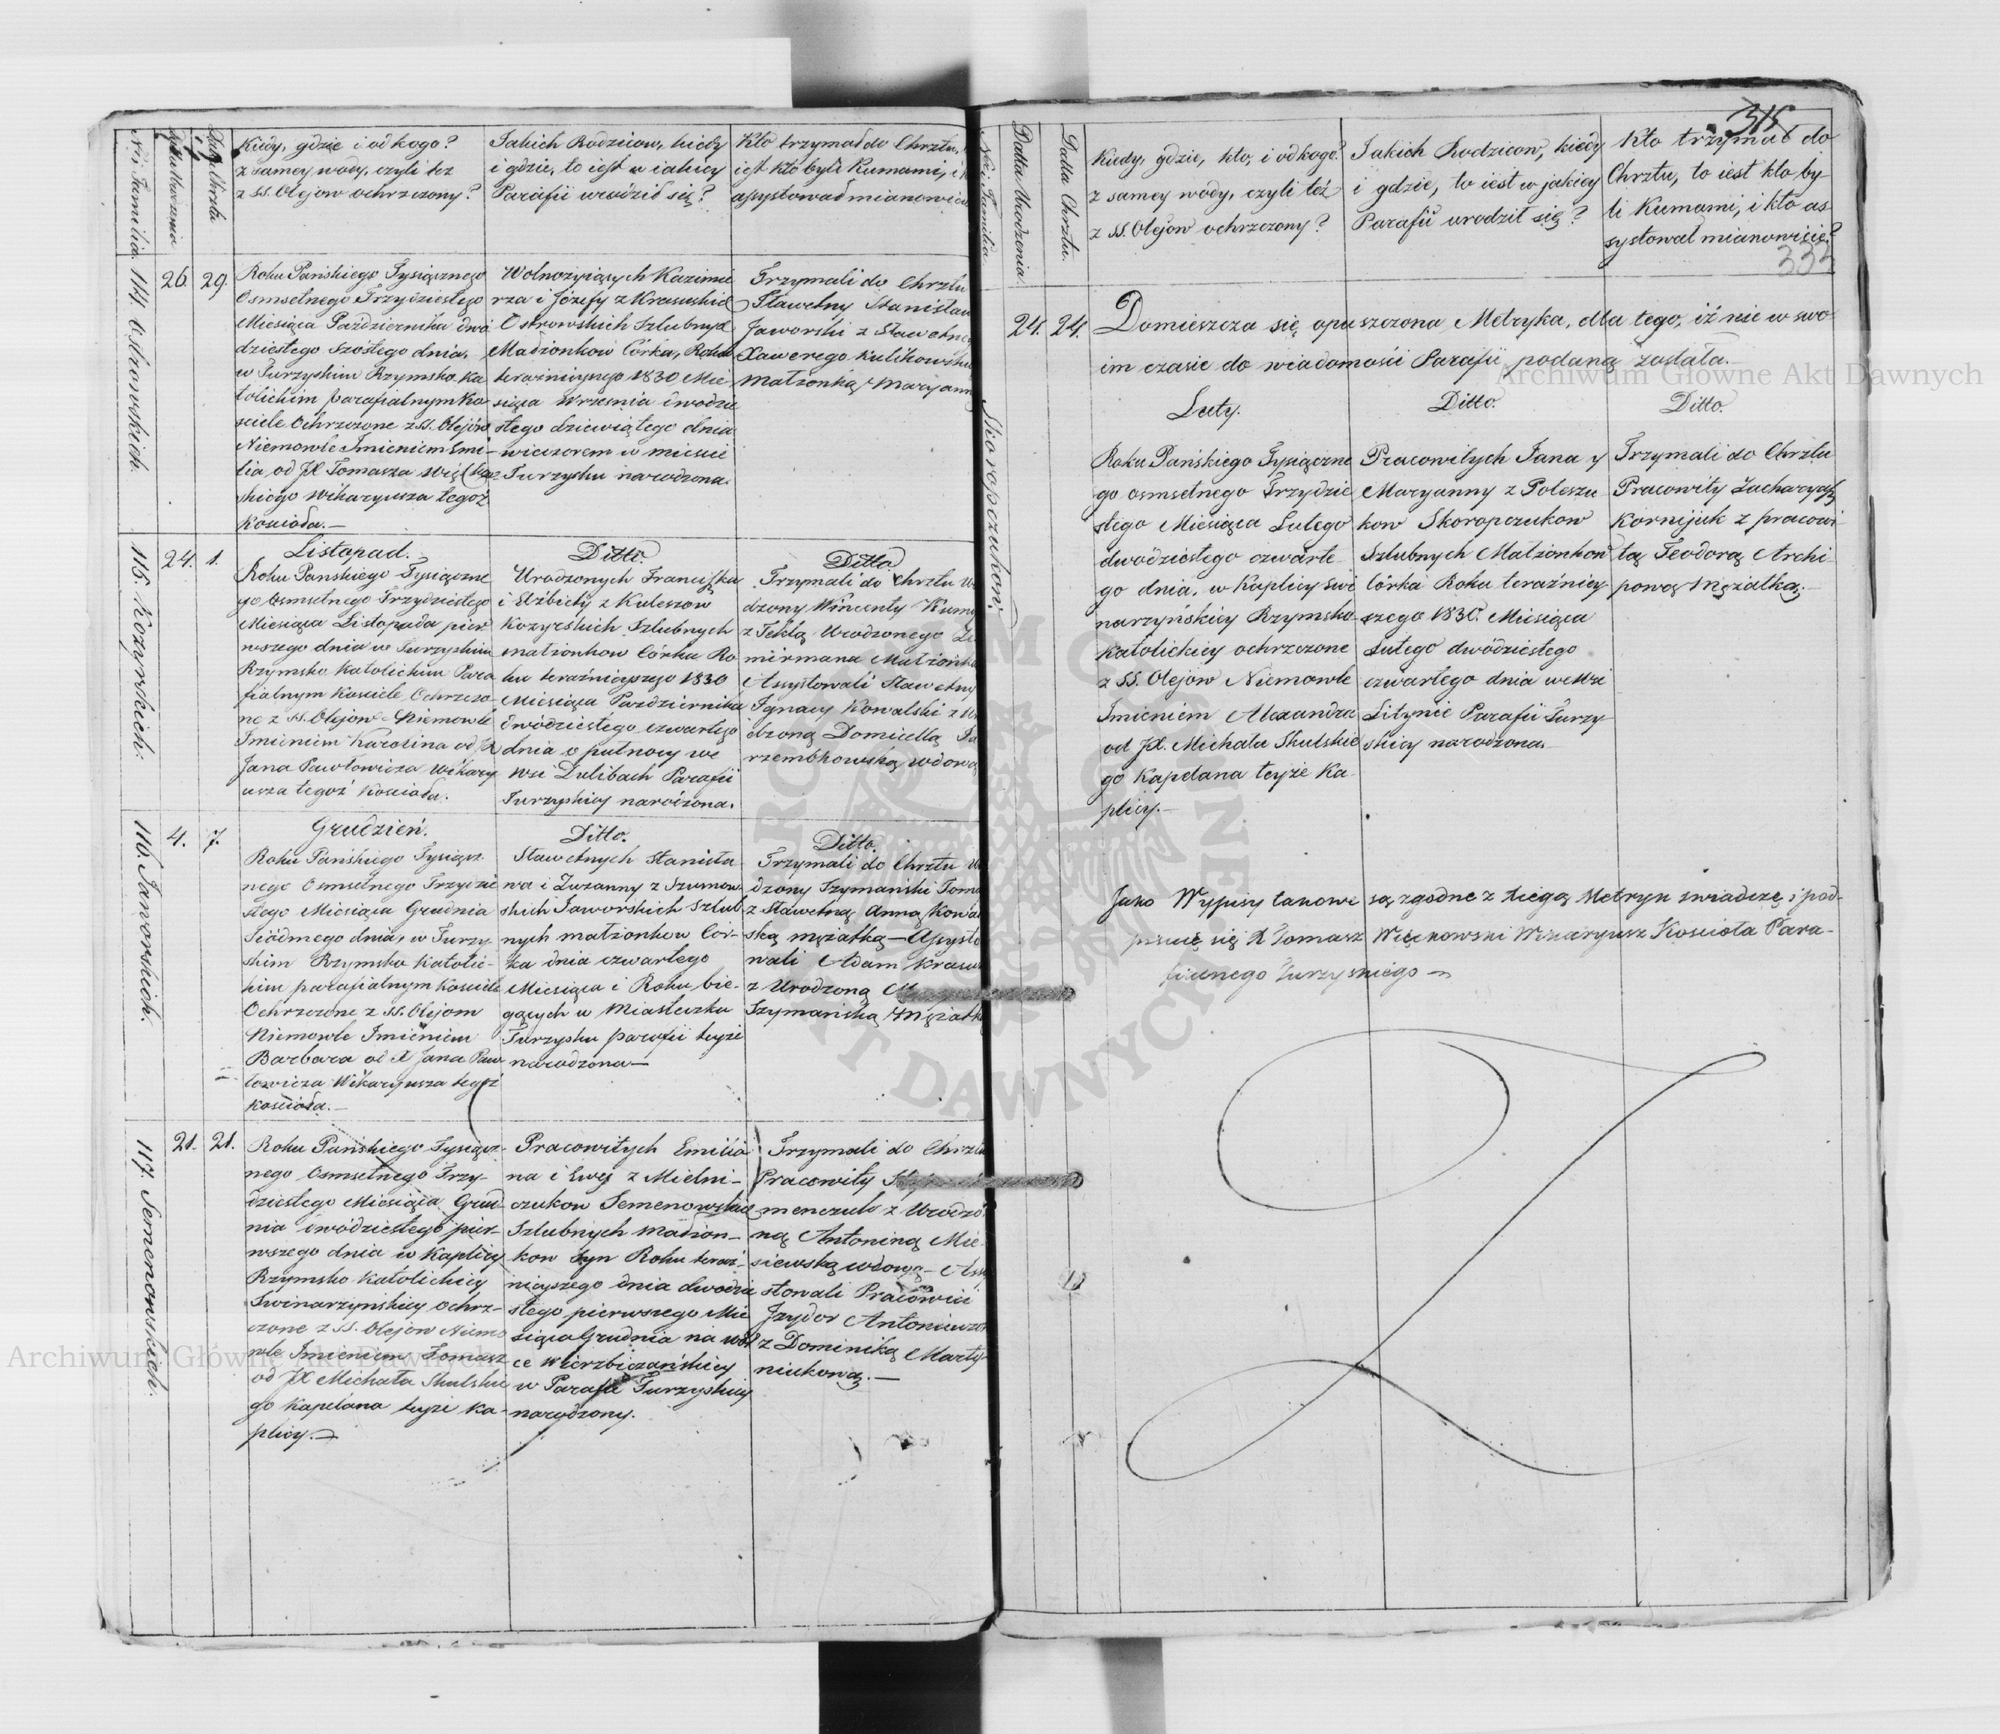 Nr. i Familia.
Data Urodzenia
Data Chrztu
Kiedy, gdzie i od kogo?
z samey wody, czyli też
z SS. Olejow ochrzczony?
Jakich Rodzicow, kiedy
i gdzie, to iest w iakiey
Parafii urodził się?
Kto trzymał do Chrztu,
iest kto byli Kumami, i
assystował mianowicie
114. Ostrowskich.
26. 29.
Roku Pańskiego Tysiącznego
Osmsetnego Trzydziestego
Miesiąca Października dwó
dziestego szóstego dnia,
w Turzyskim Rzymsko Ka
tolickim parafialnym Ko
sciele Ochrzczone z SS. Olejów
Niemowle Imieniem Emi-
lia, od JX Tomasza Więckow
skiego Wikaryusza tegoż
Kościoła.—
Wolnożyiących Kazimie
rza i Józefy z Krasuskich
Ostrowskich Szlubnych
Małżonkow Córka, Roku
teraźnieyszego 1830 Mie
siąca Września dwodzie
stego dziewiątego dnia
wieczorem w mieście
Turzysku narodzona.
Trzymali do Chrztu
Sławetny Stanisław
Jaworski z Sławetnego
Xawerego Kulikowskiego
Małżonką Maryanną
115. Kozyrskich.
24. 1.
Listopad.
Roku Pańskiego Tysiączne
go Osmsetnego Trzydziestego
Miesiąca Listopada pier
wszego dnia w Turzyskim
Rzymsko Katolickim Para
fialnym Kosciele Ochrzczo
ne z SS. Olejow Niemowle
Imieniem Karolina od JX
Jana Pawłowicza Wikary
usza tegoż Kościoła.
Ditto.
Urodzonych Franciszka
i Elżbiety z Kuleszow
Kozyrskich Szlubnych
małżonkow Córka Ro
ku teraźnieyszego 1830
Miesiąca Października
dwódziestego czwartego
dnia o pułnocy we
Wsi Dulibach Parafii
Turzyskiey narodzona.
Ditto
Trzymali do Chrztu U
dzony Wincenty
z Teklą Urodzonego
mirmana Małżonką
Assystowali Sławetny
Ignacy Kowalski z U
dzoną Domicellą
rzembkowską wdową
116. Janorskich.
4. 7.
Grudzień.
Roku Pańskiego Tysiącz
nego Osmsetnego Trzydzie
stego Miesiąca Grudnia
Siódmego dnia, w Turzy
skim Rzymsko Katolic-
kim parafialnym Kościele
Ochrzczone z SS. Olejow
Niemowle Imieniem
Barbara od X Jana Paw
łowicza Wikaryusza tegoż
Kościoła.—
Ditto.
Sławetnych Stanisła-
wa i Zuzanny z Szumow
skich Jaworskich Szlub
nych małżonkow Cór-
ka dnia czwartego
Miesiąca i Roku bie-
gących w Miasteczku
Turzysku parafii teyże
narodzona—
Ditto.
Trzymali do Chrztu U
dzony Szymański Toma
z Sławetną Anną Kowal
ską mężatką—Assysto
wali Adam Krasu
z Urodzoną M
Szymańską Mężatką
117. Semenowskich.
21. 21.
Roku Pańskiego Tysiącz-
nego Osmsetnego Trzy-
dziestego Miesiąca Grud-
nia dwódziestego pier-
wszego dnia w Kaplicy
Rzymsko Katolickiey
Swinarzyńskiey Ochrz-
czone z SS. Olejow Niemo
wle Imieniem Tomasz
od JX Michała Skulskie
go Kapelana teyże Ka-
plicy.—
Pracowitych Emilia
na i Ewy z Mielni-
czukow Semenowskich
Szlubnych Małżon-
kow Syn Roku teraź-
nieyszego dnia dwodzie
stego pierwszego Mie
siąca Grudnia na wól
ce Wierzbiczańskiey
w Parafii Turzyskiey
narodzony.
Trzymali do Chrztu
Pracowity
menczuk z Urodzo
ną Antoniną Mie
siewską wdową—Assy
stowali Pracowici
Jzydor Antoniuczuk
z Dominiką Marty-
niukową.—
315.
335
Nr. i Familia
Datta Urodzenia.
Datta Chrztu.
Kiedy, gdzie, kto, i od kogo?
z samey wody, czyli też
z SS. Olejow ochrzczony?
Jakich Rodzicow, kiedy
i gdzie, to iest w jakiey
Parafii urodził się?
Kto trzymał do
Chrztu, to iest kto by-
li Kumami, i kto as-
systował mianowicie?
Skoropczukow.
24. 24.
Domieszcza się opuszczona Metryka, dla tego, iż nie w swo-
im czasie do wiadomości Parafii podaną została.
Luty.
Ditto.
Ditto.
Roku Pańskiego Tysiączne
go osmsetnego Trzydzie
stego Miesiąca Lutego
dwodziestego czwarte
go dnia, w Kaplicy Swi
narzyńskiey Rzymsko
Katolickiey ochrzczone
z SS. Olejow Niemowle
Imieniem Alexandra
od JX. Michała Skulskie
go Kapelana teyże Ka-
plicy.—
Pracowitych Jana y
Maryanny z Poleszu
kow Skoropczukow
Szlubnych Małżonkow
Córka Roku teraźniey-
szego 1830. Miesiąca
Lutego dwódziestego
czwartego dnia we Wsi
Litynie Parafii Turzy-
skiey narodzona.
Trzymali do Chrztu
Pracowity Zacharyasz
Kornijuk z pracowi
tą Teodorą Archi-
pową Mężatką.—
Jako Wypisy takowe są zgodne z Xięgą Metryn świadczę i pod-
pisuię się X Tomasz Więckowski Wikaryusz Kościoła Para-
fialnego Turzyskiego
Archiwum Główne Akt Dawnych
Archiwum Główne Akt Dawnych